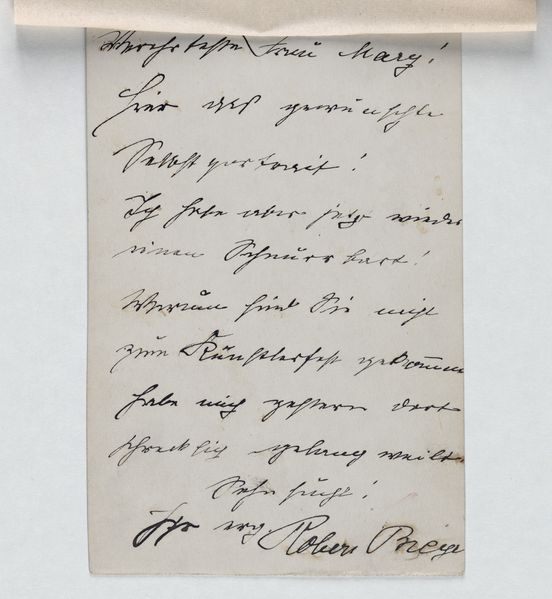 Verehrteste Frau Mary!
Hier das gewünschte
Selbstportrait!
Ich habe aber jetz wieder
einen Schnurrbart!
Warum sind Sie nicht
zum Künstlerfest gekommen
habe mich gestern dort
schrecklich gelangweilt.
Sehnsucht!
Ihr erg. Robert